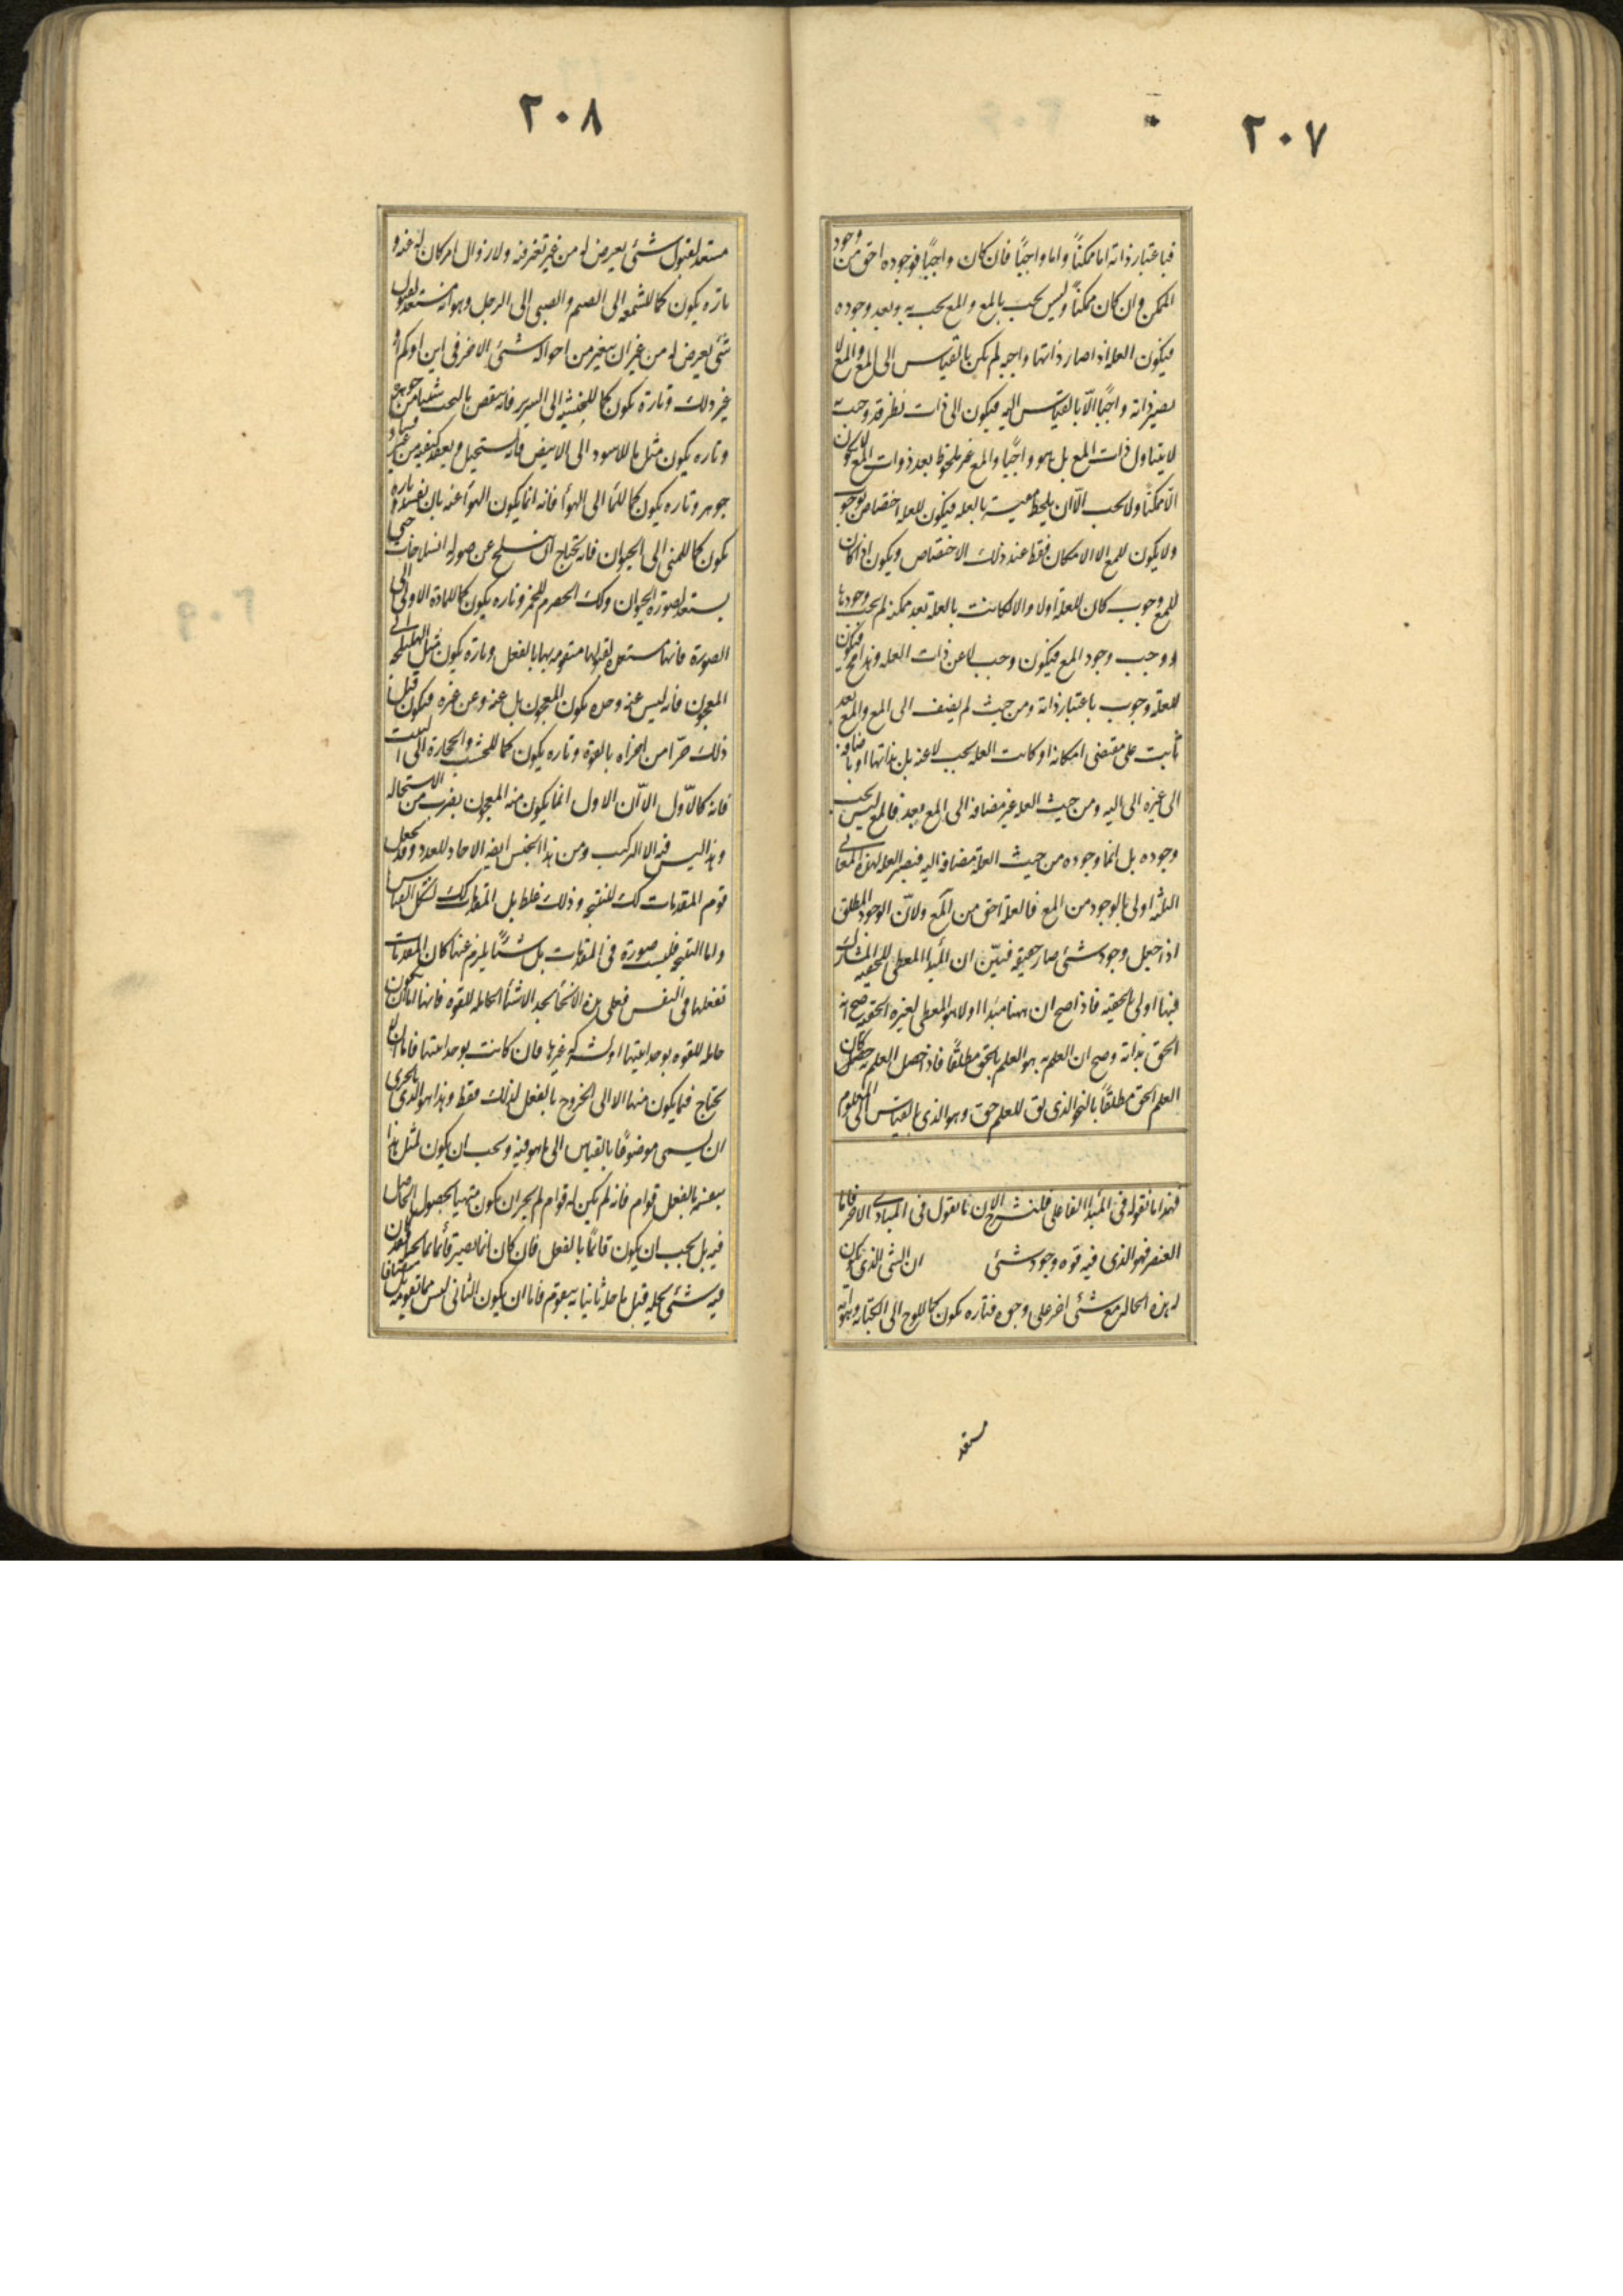 ٢٠٧
فباعتبار ذاته اما ممكناً واما واجبًا فان كان واجبًا فوجوده احق من وجود
الممكن وان كان ممكناً وليس يجب بالمع والمع يجب به وبعد وجوده
فيكون العلة اذا صار ذاتها واجبه لم يكن بالقياس الى المع والمع لا
يصير ذاته واجبًا الّا بالقياس اليه فيكون الى ذات نظر قد وجب به
لا يتناول ذات المع بل هو واجبًا والمع غير ملحوظ بعد ذوات المع لا يكون
الّا ممكنًا ولا يجب الّا ان يلحظ معيته بالعله فيكون للعله اختصاص بوجوب
ولا يكون للمع الا الامكان فقط عند ذلك الاختصاص ويكون اذا كان
للمع وجوب كان للعلة اولا والا لكانت بالعلة بعد ممكنه لم يجب وجودها
ووجب وجود المع فيكون وجب لا عن ذات العله وهذا مح فيكون
للعلة وجوب باعتبار ذاته ومن حيث لم يضف الى المع والمع بعد
ثابت على مقتضى امكانه او كانت العله يجب لا عنه بل بذاتها او باضافة
الى غيره الى اليه ومن حيث العله غير مضافه الى المع بعد فالمع ليس يجب
وجوده بل انما وجوده من حيث العلة مضافه اليه فيصير العله لهذه المعانى
الثلثه اولى بالوجود من المع فالعلة احق من المع ولانّ الوجود المطلق
اذا جعل وجود شئى صار حقيقه فبيّن ان المبدأ المعطى للحقيقه المشارك
فيها اولى بالحقيه فاذا صح ان ههنا مبدا اولا هو المعطى لغيره الحقيه صح انه
الحق بذاته وصح ان العلم به هو العلم بالحق مطلقًا فاذا حصل العلم به كان
العلم الحق مطلقًا بالنحو الذى يق للعلم حق وهو الذى بالقياس الى المعلوم
فهذا ما نقوله فى المبدأ الفاعلى فلنشرح الان ما نقول فى المبادى الاخر فاما
العنصر فهو الذى فيه قوه وجود شئى ان الشئ الذى يكون
له هذه الحاله مع شئى اخر على وجوه فتاره يكون كما للوح الى الكتابه وهو انه
مستعد
٢٠٨
مستعد لقبول شئى يعرض له من غير تغير فيه ولا زوال امر كان له عنه و
تاره يكون كما للشمعه الى الصنم والصبى الى الرجل وهو انه مستعد لقبول
شئى يعرض له من غير ان يتغير من احواله شئى الا حركه فى اين او كم او
غير ذلك وتارة يكون كما للخشبه الى السرير فانه ينقص بالنحت شيئا من جوهره
وتاره يكون مثل ما للاسود الى الابيض فانه يستحيل ويفقد كيفيه من غير فساد
جوهر وتاره يكون كما للماء الى الهوأ فانه انما يكون الهوأ عنه بان يفسد وتاره
يكون كما للمنى الى الحيوان فانه يحتاج ان ينسلخ عن صور له انسلاخات حتى
يستعد لصورة الحيوان وكذلك الحصرم للخمر وتاره يكون كما للمادة الاولى الى
الصورة فانها مستعده لقبولها متقومه بها بالفعل وتاره يكون مثل الهليلجه الى
المعجون فانه ليس عنه وحده يكون المعجون بل عنه وعن غيره فيكون قبل
ذلك جزأ من اجزاه بالقوة وتاره يكون كما للخشب والحجارة الى البيت
فانه كالاّول الاّ ان الاول انما يكون منه المعجون بضرب من الاستحاله
وهذا ليس فيه الا التركيب ومن هذا الجنس ايضا الاحاد للعدد وقد يجعل
قوم المقدمات كك للنتيجه وذلك غلط بل المقدمات كك لشكل القياس
واما النتيجه فليست صورة فى المقدمات بل شيئًا يلزم عنها كان المقدمات
تفعلها فى النفس فعلى هذه الانحأ نجد الاشيأ الحامله للقوه فانها اما ان يكون
حامله للقوه بوحدانيتها او بشركة غيرها فان كانت بوحدانيتها فاما ان لا
يحتاج فيما يكون منها الا الى الخروج بالفعل لذلك فقط وهذا هو الذى بالحرى
ان يسمى موضوعًا بالقياس الى ما هو فيه ويجب ان يكون لمثل هذا
بنفسه بالفعل قوام فانه لم يكن له قوام لم يجز ان يكون متهيا لحصول الحاصل
فيه بل يجب ان يكون قائمًا بالفعل فان كان انما يصير قائما بما يحله فقد كان
فيه شئى يحله قبل ما حله ثانيا به يتقوم فاما ان يكون الثانى ليس مما يقومه بل مضافا